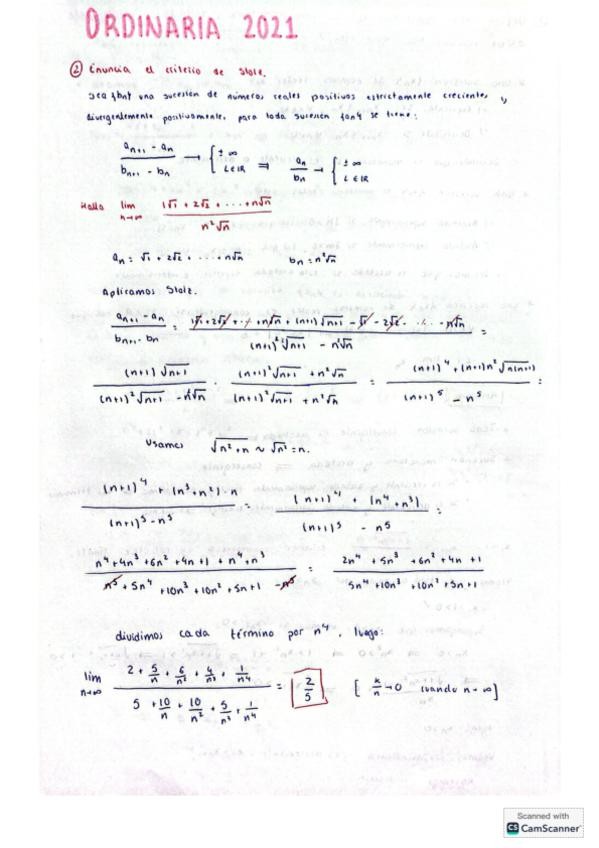 ORDINARIA 2021
② Enuncia el criterio de Stolz.
Sea {bn} una sucesión de números reales positivos estrictamente creciente, y
divergentemente positivamente. para toda sucesión {an} se tiene:
(a_{n+1} - a_n)/(b_{n+1} - b_n) → { ±∞, L∈ℝ ⇒ a_n/b_n → { ±∞, L∈ℝ
Halla lim_{n→∞} (1√1 + 2√2 + ... + n√n)/(n²√n)
a_n = √1 + 2√2 + ... + n√n     b_n = n²√n
Aplicamos Stolz.
(a_{n+1} - a_n)/(b_{n+1} - b_n) = (1√1 + 2√2 + ... + n√n + (n+1)√n+1 - √1 - 2√2 - ... - n√n)/((n+1)²√n+1 - n²√n) =
((n+1)√n+1)/((n+1)²√n+1 - n²√n) · ((n+1)²√n+1 + n²√n)/((n+1)²√n+1 + n²√n) = ((n+1)⁴ + (n+1)n²√n(n+1))/((n+1)⁵ - n⁵) =
Usamos √n²+n ~ √n² = n.
((n+1)⁴ + (n³+n²)·n)/((n+1)⁵ - n⁵) = ((n+1)⁴ + (n⁴+n³))/((n+1)⁵ - n⁵) =
(n⁴+4n³+6n²+4n+1+n⁴+n³)/(n⁵+5n⁴+10n³+10n²+5n+1-n⁵) = (2n⁴+5n³+6n²+4n+1)/(5n⁴+10n³+10n²+5n+1)
dividimos cada término por n⁴, luego:
lim_{n→∞} (2 + 5/n + 6/n² + 4/n³ + 1/n⁴)/(5 + 10/n + 10/n² + 5/n³ + 1/n⁴) = 2/5 [ k/n → 0 cuando n→∞]
Scanned with
CS CamScanner